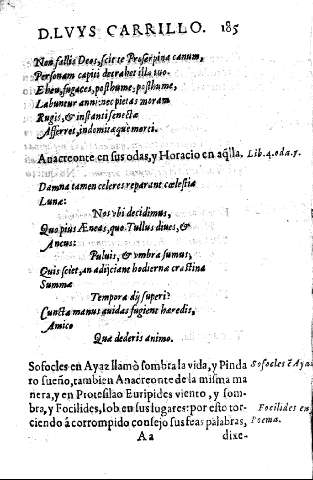 D. LVYS CARRILLO. 185
Non fallis Deos, scit te Proserpina canum,
Personam capiti detrahet illa tuo.
Eheu, fugaces, posthume, posthume,
Labuntur anni: nec pietas moram
Rugis, & instanti senectæ
Afferret, indomitæque morti.
Anacreonte en sus odas, y Horacio en aq̃lla. Lib. 4. oda. 7.
Damna tamen celeres reparant cœlestia
Lunæ:
Nos vbi decidimus,
Quo pius Æneas, quo Tullus diues, &
Ancus:
Puluis, & vmbra sumus,
Quis sciet, an adijciant hodierna crastina
Summæ
Tempora dij superi?
Cuncta manus auidas fugient hæredis,
Amico
Quæ dederis animo.
Sofocles en Ayaz llamò sombra la vida, y Pinda Sofocles ẽ Aya
ro sueño, tambien Anacreonte de la misma ma
nera, y en Protesilao Euripides viento, y som-
bra, y Focilides, lob en sus lugares: por esto tor- Focilides en
ciendo á corrompido consejo sus feas palabras, Poema.
Aa dixe-